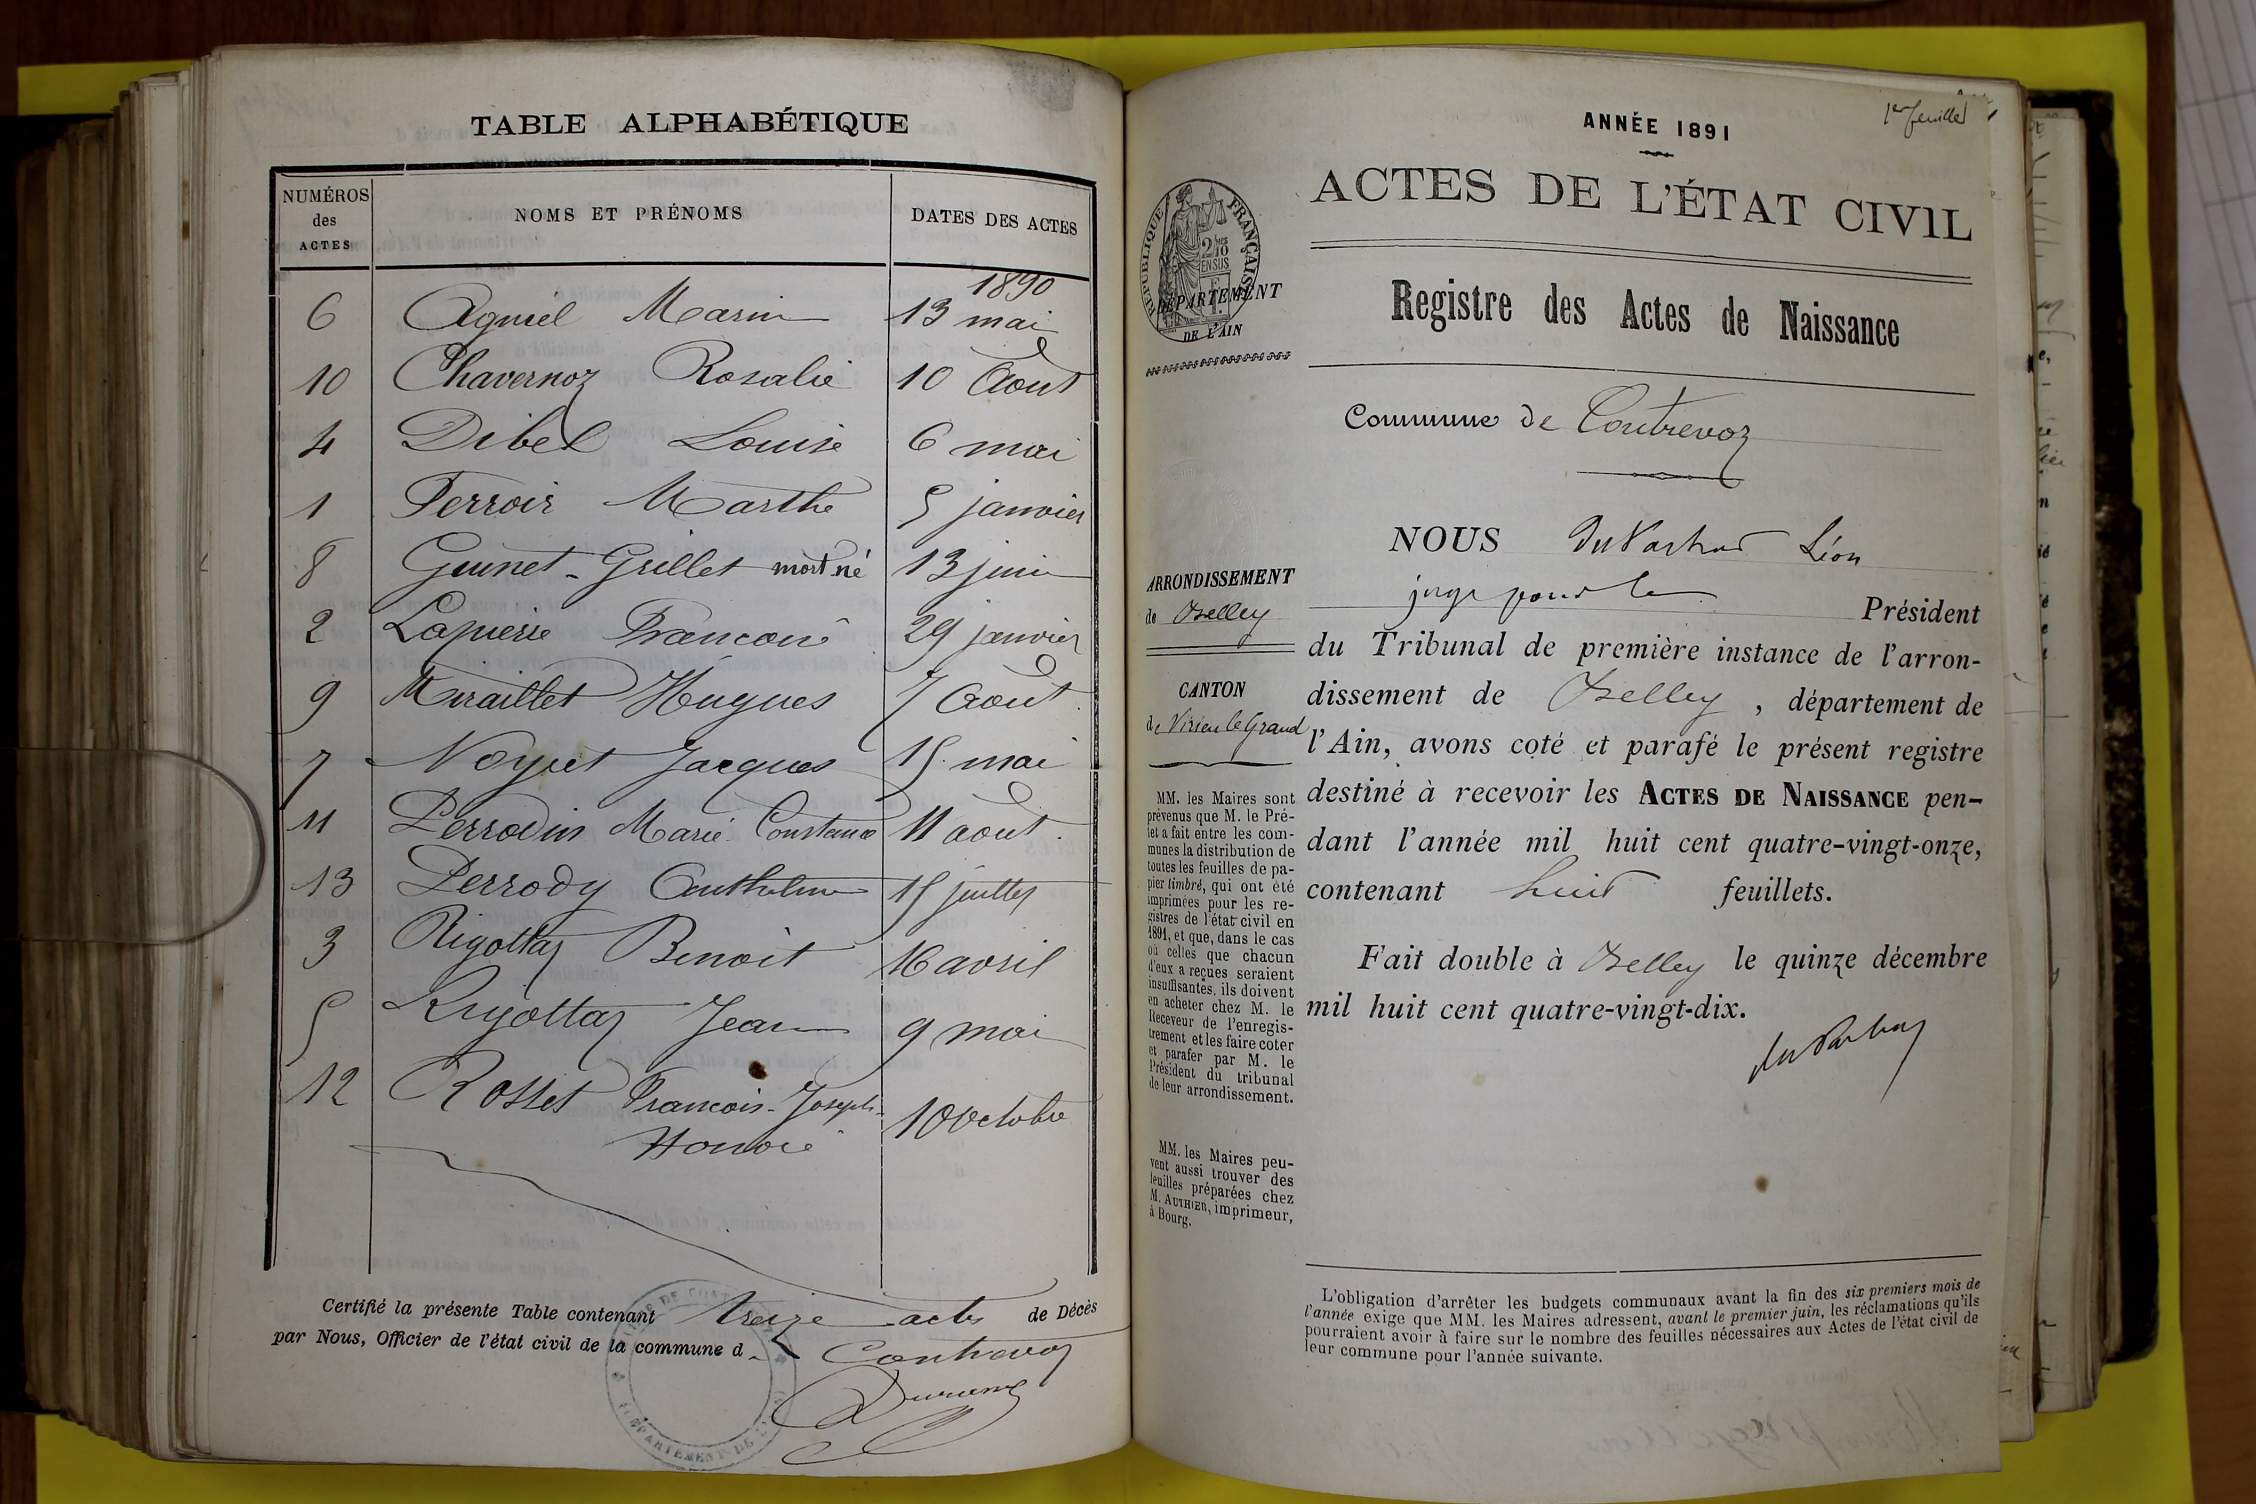 TABLE ALPHABÉTIQUE
NUMÉROS des ACTES
NOMS ET PRÉNOMS
DATES DES ACTES
1890
6 Agniel Marin 13 mai
10 Chavernoz Rosalie 10 Août
4 Dibel Louise 6 mai
1 Ferroir Marthe 5 janvier
8 Guinet-Grillet mort né 13 juin
2 Lapierre Francoise 29 janvier
9 Miraillet Hugues 7 Août
7 Noyret Jacques 15 mai
11 Perrodin Marie Constance 11 août
13 Perrody Anthelme 15 juillet
3 Rigottaz Benoit 16 avril
5 Rigottaz Jean 9 mai
12 Rosset Francois-Joseph-
Honoré 10 Octobre
Certifié la présente Table contenant treize actes de Décès
par Nous, Officier de l'état civil de la commune d Contrevoz
1er feuillet
ANNÉE 1891
ACTES DE L'ÉTAT CIVIL
RÉPUBLIQUE FRANÇAISE
DÉPARTEMENT
DE L'AIN
Registre des Actes de Naissance
Commune de Contrevoz
ARRONDISSEMENT
de Belley
CANTON
de Virieu le Grand
MM. les Maires sont
prévenus que M. le Pré-
fet a fait entre les com-
munes la distribution de
toutes les feuilles de pa-
pier timbré, qui ont été
imprimées pour les re-
gistres de l'état civil en
1891, et que, dans le cas
où celles que chacun
d'eux a reçues seraient
insuffisantes, ils doivent
en acheter chez M. le
Receveur de l'enregis-
trement et les faire coter
et parafer par M. le
Président du tribunal
de leur arrondissement.
MM. les Maires peu-
vent aussi trouver des
feuilles préparées chez
M. AUTHIER, imprimeur,
à Bourg.
NOUS Léon
juge pour le Président
du Tribunal de première instance de l'arron-
dissement de Belley, département de
l'Ain, avons coté et parafé le présent registre
destiné à recevoir les ACTES DE NAISSANCE pen-
dant l'année mil huit cent quatre-vingt-onze,
contenant huit feuillets.
Fait double à Belley le quinze décembre
mil huit cent quatre-vingt-dix.
L'obligation d'arrêter les budgets communaux avant la fin des six premiers mois de
l'année exige que MM. les Maires adressent, avant le premier juin, les réclamations qu'ils
pourraient avoir à faire sur le nombre des feuilles nécessaires aux Actes de l'état civil de
leur commune pour l'année suivante.